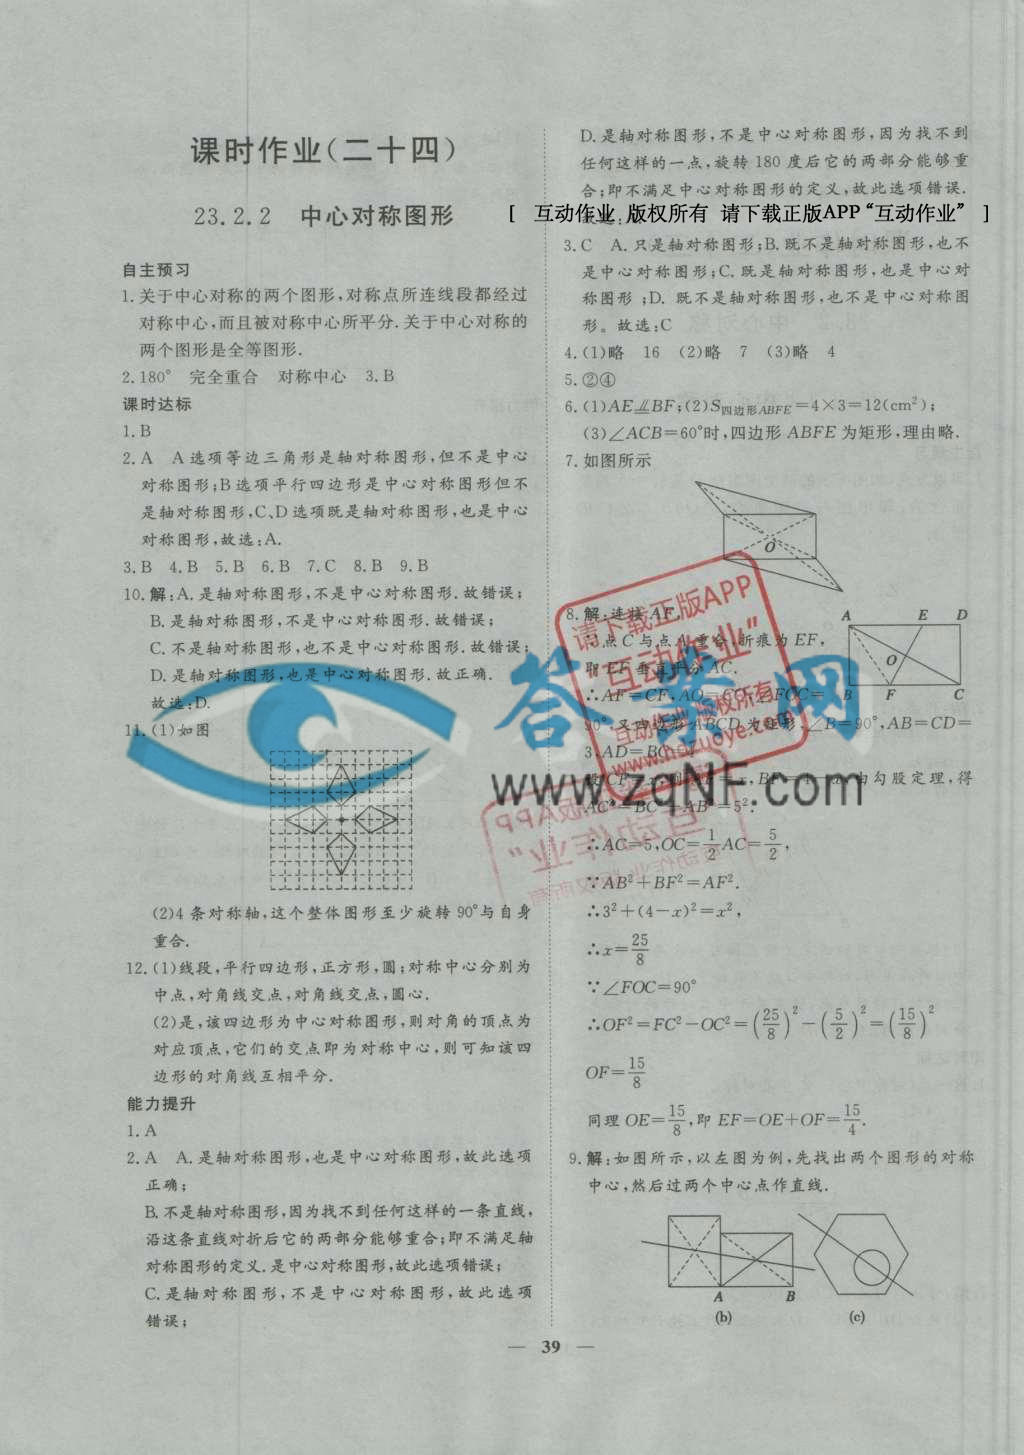 课时作业(二十四)
23.2.2 中心对称图形
自主预习
1.关于中心对称的两个图形,对称点所连线段都经过
对称中心,而且被对称中心所平分.关于中心对称的
两个图形是全等图形.
2.180° 完全重合 对称中心 3.B
课时达标
1.B
2.A A选项等边三角形是轴对称图形,但不是中心
对称图形;B选项平行四边形是中心对称图形但不
是轴对称图形,C、D选项既是轴对称图形,也是中心
对称图形,故选:A.
3.B 4.B 5.B 6.B 7.C 8.B 9.B
10.解:A.是轴对称图形,不是中心对称图形.故错误;
B.是轴对称图形,不是中心对称图形.故错误;
C.不是轴对称图形,是中心对称图形.故错误;
D.是轴对称图形,也是中心对称图形.故正确.
故选:D.
11.(1)如图
(2)4条对称轴,这个整体图形至少旋转90°与自身
重合.
12.(1)线段,平行四边形,正方形,圆;对称中心分别为
中点,对角线交点,对角线交点,圆心.
(2)是,该四边形为中心对称图形,则对角的顶点为
对应顶点,它们的交点即为对称中心,则可知该四
边形的对角线互相平分.
能力提升
1.A
2.A A.是轴对称图形,也是中心对称图形,故此选项
正确;
B.不是轴对称图形,因为找不到任何这样的一条直线,
沿这条直线对折后它的两部分能够重合;即不满足轴
对称图形的定义.是中心对称图形,故此选项错误;
C.是轴对称图形,不是中心对称图形,故此选项
错误;
D.是轴对称图形,不是中心对称图形,因为找不到
任何这样的一点,旋转180度后它的两部分能够重
合;即不满足中心对称图形的定义,故此选项错误.
[ 互动作业 版权所有 请下载正版APP“互动作业” ]
3.C A.只是轴对称图形;B.既不是轴对称图形,也不
是中心对称图形;C.既是轴对称图形,也是中心对
称图形;D.既不是轴对称图形,也不是中心对称图
形。故选:C
4.(1)略 16 (2)略 7 (3)略 4
5.②④
6.(1)AE⫽BF;(2)S四边形ABFE=4×3=12(cm²);
(3)∠ACB=60°时,四边形ABFE为矩形,理由略.
7.如图所示
O
8.解:连接AF,
∵点C与点A重合,折痕为EF,
即EF垂直平分AC.
∴AF=CF,AO=CO,∠FOC=
90°.又四边形ABCD为矩形,∠B=90°,AB=CD=
3,AD=BC=4.
AC²=BC²+AB²=5².
A E D
O
B F C
∴AC=5,OC=1/2AC=5/2,
∵AB²+BF²=AF².
∴3²+(4-x)²=x²,
∴x=25/8
∵∠FOC=90°
∴OF²=FC²-OC²=(25/8)²-(5/2)²=(15/8)²
OF=15/8
同理OE=15/8,即EF=OE+OF=15/4.
9.解:如图所示,以左图为例,先找出两个图形的对称
中心,然后过两个中心点作直线.
A B
(b) (c)
39
答案网
www.zqNF.com
请下载正版APP
“互动作业”
互动作业 版权所有
www.hdzuoye.com